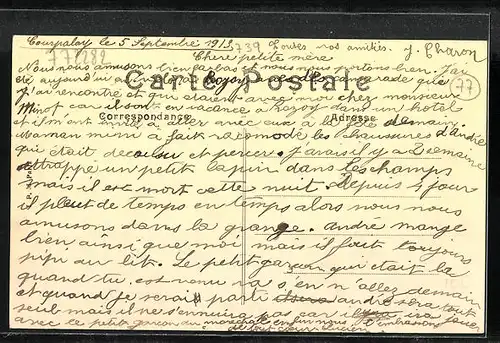 Courpalay le 5 Septembre 1913 739 Toutes vos amitiés. J. Charon
778288
Chère petite mère
Nous nous amusons bien là bas et nous nous portons bien. J'ai
été aujourd'hui a Rozoy avec des camarade que
Carte Postale
77
j'ai rencontré et qui étaient avec moi chez monsieur
Minot car ils sont en vacance a Rozoy dans un hotel
et il m'ont invité a aller avec eux a la fête demain.
Correspondance
Adresse
Maman mimi a fait racomodé les chaussures d'André
qui était décousu et percer. J'avais il y a 1 semaine
attrappé un petit lapin dans les champs
mais il est mort cette nuit. Depuis 4 jour
il pleut de temps en temps alors nous nous
amusons dans la grange. André mange
bien ainsi que moi mais il fait toujours
pipi au lit. Le petit garçon qui était la
quand tu est venu va s'en n'allez demain
et quand je serai parti André sera tout
seul mais il ne s'ennuira pas car il ira jouer
avec le petit garçon du maréchal
de tout cœur Lucien